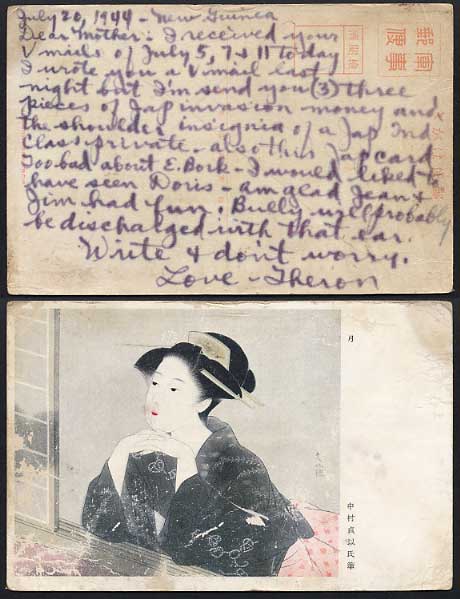 July 20, 1944 - New Guinea
Dear Mother: I received your
V mails of July 5, 7 & 11 today
I wrote you a V mail last
night but I'm send you (3) three
pieces of Jap invasion money and
the shoulder insignia of a Jap 2nd
Class private - also this Jap card
Too bad about E. Bork - I would liked to
have seen Doris - am glad Jean &
Jim had fun. Bully will probably
be discharged with that ear.
Write & don't worry.
Love - Theron
軍事
郵便
月
中村貞以氏筆